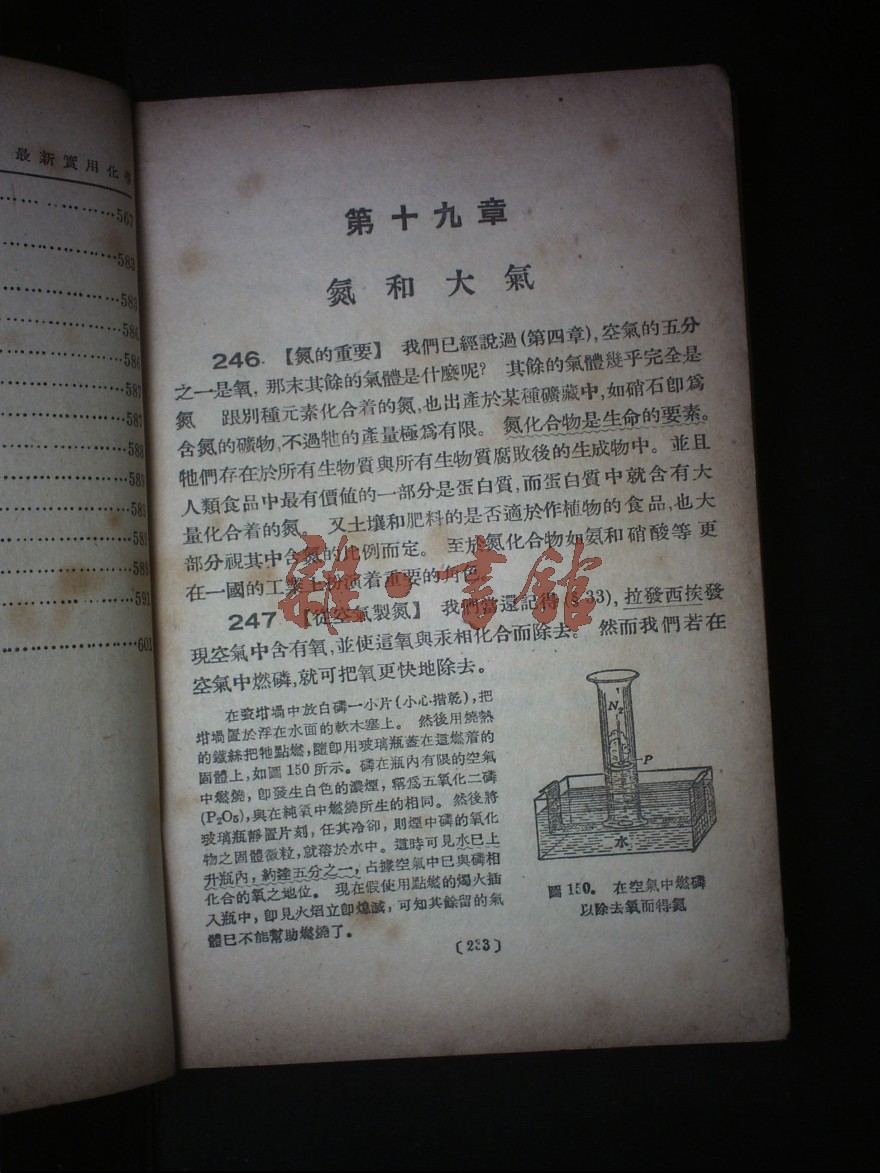 最新實用化學
567
583
583
586
586
587
587
588
589
589
589
589
591
601
第十九章
氮和大氣
246. 【氮的重要】 我們已經說過(第四章),空氣的五分
之一是氧, 那末其餘的氣體是什麼呢? 其餘的氣體幾乎完全是
氮 跟別種元素化合着的氮,也出產於某種礦藏中,如硝石卽爲
含氮的礦物,不過牠的產量極爲有限。 氮化合物是生命的要素。
牠們存在於所有生物質與所有生物質腐敗後的生成物中。並且
人類食品中最有價値的一部分是蛋白質,而蛋白質中就含有大
量化合着的氮。 又土壤和肥料的是否適於作植物的食品,也大
部分視其中含氮的比例而定。 至於氮化合物如氨和硝酸等 更
在一國的工業上扮演着重要的角色。
雜·書館
247 【從空氣製氮】 我們當還記得(§33), 拉發西挨發
現空氣中含有氧,並使這氧與汞相化合而除去。 然而我們若在
空氣中燃磷,就可把氧更快地除去。
在瓷坩堝中放白磷一小片(小心揩乾),把
坩堝置於浮在水面的軟木塞上。 然後用燒熱
的鐵絲把牠點燃,隨卽用玻璃瓶蓋在這燃着的
固體上,如圖150所示。磷在瓶內有限的空氣
中燃燒,卽發生白色的濃煙,稱爲五氧化二磷
(P₂O₅),與在純氧中燃燒所生的相同。 然後將
玻璃瓶靜置片刻, 任其冷卻, 則煙中磷的氧化
物之固體微粒,就溶於水中。這時可見水已上
升瓶內,約達五分之一,占據空氣中已與磷相
化合的氧之地位。 現在假使用點燃的燭火插
入瓶中,卽見火焰立卽熄滅,可知其餘留的氣
體已不能幫助燃燒了。
N₂
P
水
圖150。 在空氣中燃磷
以除去氧而得氮
(233)